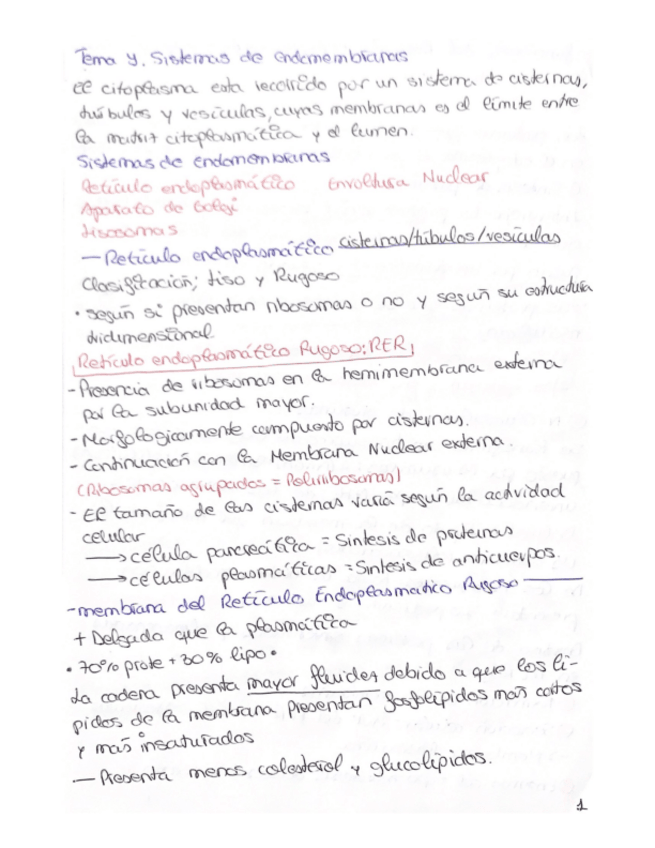 Tema 4. Sistemas de endomembranas
El citoplasma esta recorrido por un sistema de cisternas,
túbulos y vesículas, cuyas membranas es el límite entre
la matriz citoplasmática y el lumen.
Sistemas de endomembranas
Retículo endoplasmático Envoltura Nuclear
Aparato de Golgi
Lisosomas
— Retículo endoplasmático cisternas/túbulos/vesículas
Clasificación; Liso y Rugoso
• según si presentan ribosomas o no y según su estructura
tridimensional
Retículo endoplasmático Rugoso: RER
- Presencia de ribosomas en la hemimembrana externa
por la subunidad mayor.
- Morfologicamente compuesto por cisternas.
- Continuación con la Membrana Nuclear externa.
(Ribosomas agrupados = Polirribosomas)
- El tamaño de las cisternas varia según la actividad
celular
→ célula pancreática = Sintesis de proteinas
→ células plasmáticas = Sintesis de anticuerpos
- membrana del Retículo Endoplasmatico Rugoso
+ Delgada que la plasmática
• 70% prote + 30% lipo •
La cadena presenta mayor fluidez debido a que los li-
pidos de la membrana presentan fosfolípidos mas cortos
y mas insaturados
— Presenta menos colesterol y glucolípidos.
1